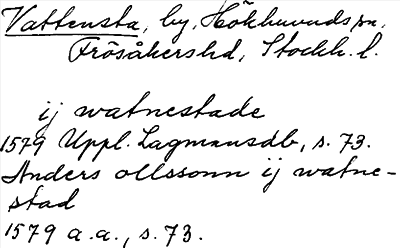 Vattensta, by, Hökhuvuds sn,
Frösåkershd, Stockh. l.
ij watnestade
1579 Uppl. Lagmansdb, s. 73.
Anders ollssonn ij watne-
stad
1579 a.a., s. 73.